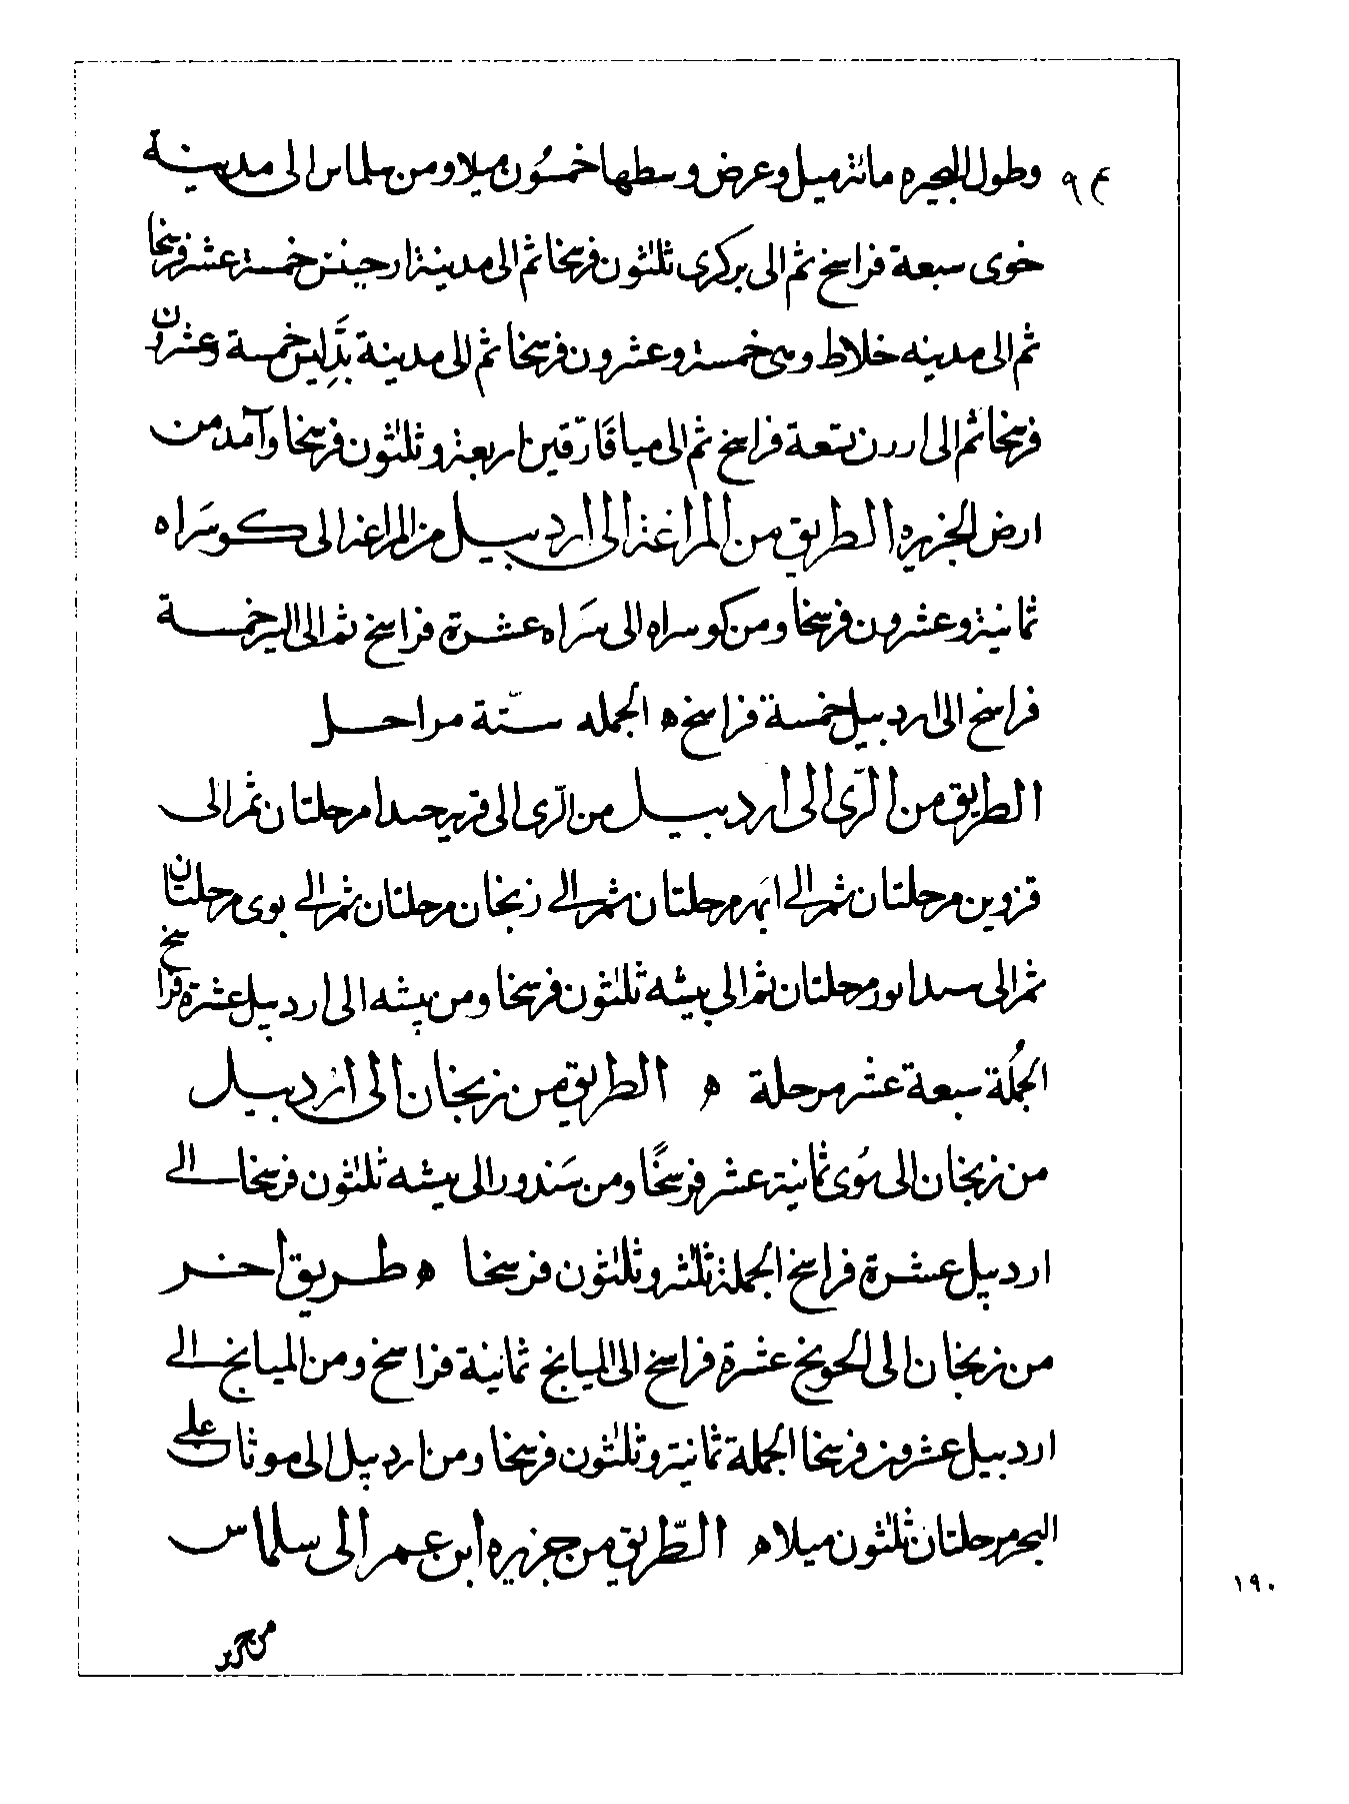 وطول البحيره مائة ميل وعرض وسطها خمسُون ميلا ومن سلماس الى مدينة
خوى سبعة فراسخ ثم الى بركرى ثلثون فرسخا ثم الى مدينة ارجيش خمسة عشر فرسخا
ثم الى مدينه خلاط وهى خمسة وعشرون فرسخا ثم الى مدينة بَدلِيس خمسة وعشرون
فرسخا ثم الى اررن تسعة فراسخ ثم الى ميافَارّقين اربعة وثلثون فرسخا وآمد من
ارض الجزيره الطريق من المراغة الى اردبيل من المراغة الى كوسَراه
ثمانية وعشرون فرسخا ومن كوسراه الى سَراه عشرة فراسخ ثم الى النير خمسة
فراسخ الى اردبيل خمسة فراسخ ه الجمله ستّة مراحل
الطريق من الرّى الى اردبيل من الرّى الى مرحلتان ثم الى
قزوين مرحلتان ثم الى ابَهر مرحلتان ثم الى زنجان مرحلتان ثم الى مرحلتان
ثم الى مرحلتان ثم الى بيشه ثلثون فرسخا ومن بيشه الى اردبيل عشرة فراسخ
الجُملة سبعة عشر مرحلة ه الطريق من زنجان الى اردبيل
من زنجان الى ثمانية عشر فرسخًا ومن سَندور الى بيشه ثلثون فرسخا الى
اردبيل عشرة فراسخ الجملة ثلثة وثلثون فرسخا ه طريق اخر
من زنجان الى الخونج عشرة فراسخ الى الميانج ثمانية فراسخ ومن الميانج الى
اردبيل عشرون فرسخا الجملة ثمانية وثلثون فرسخا ومن اردبيل الى موقان على
البحر مرحلتان ثلثون ميلا ه الطّريق من جزيره ابن عمر الى سلماس
١٩٠